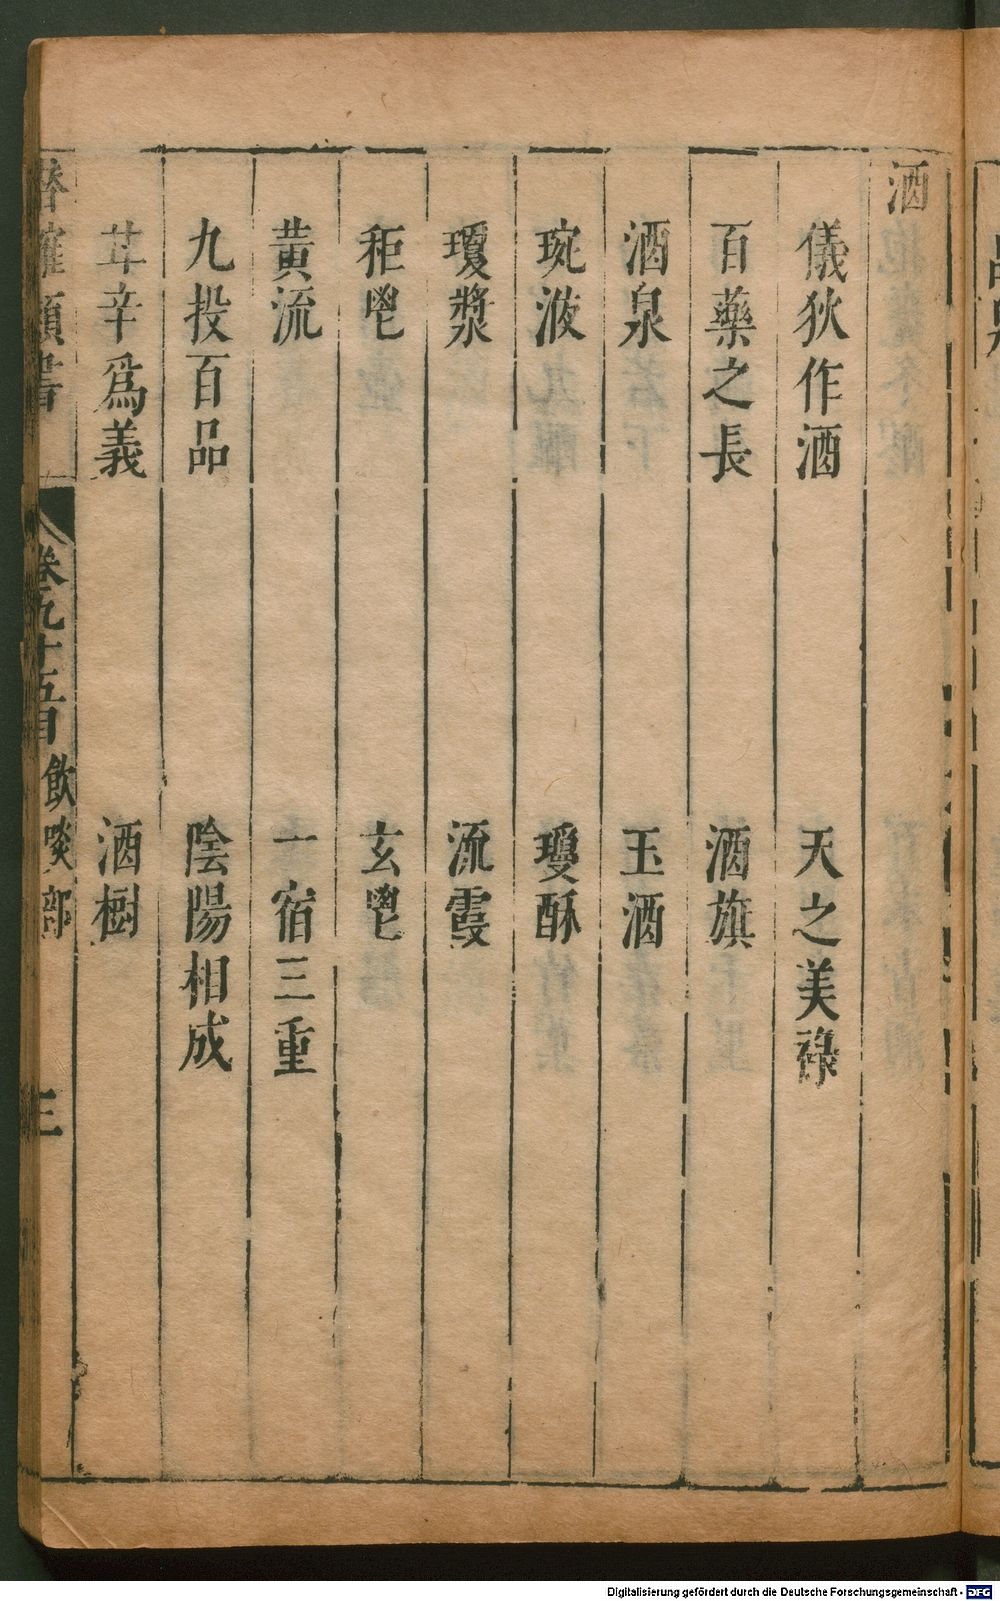 酒
儀狄作酒　天之美祿
百藥之長　酒旗
酒泉　玉酒
琬液　瓊酥
瓊漿　流霞
秬鬯　玄鬯
黄流　一宿三重
九投百品　陰陽相成
苷辛爲義　酒樹
卷九十五目　飲啖部　三
Digitalisierung gefördert durch die Deutsche Forschungsgemeinschaft - DFG